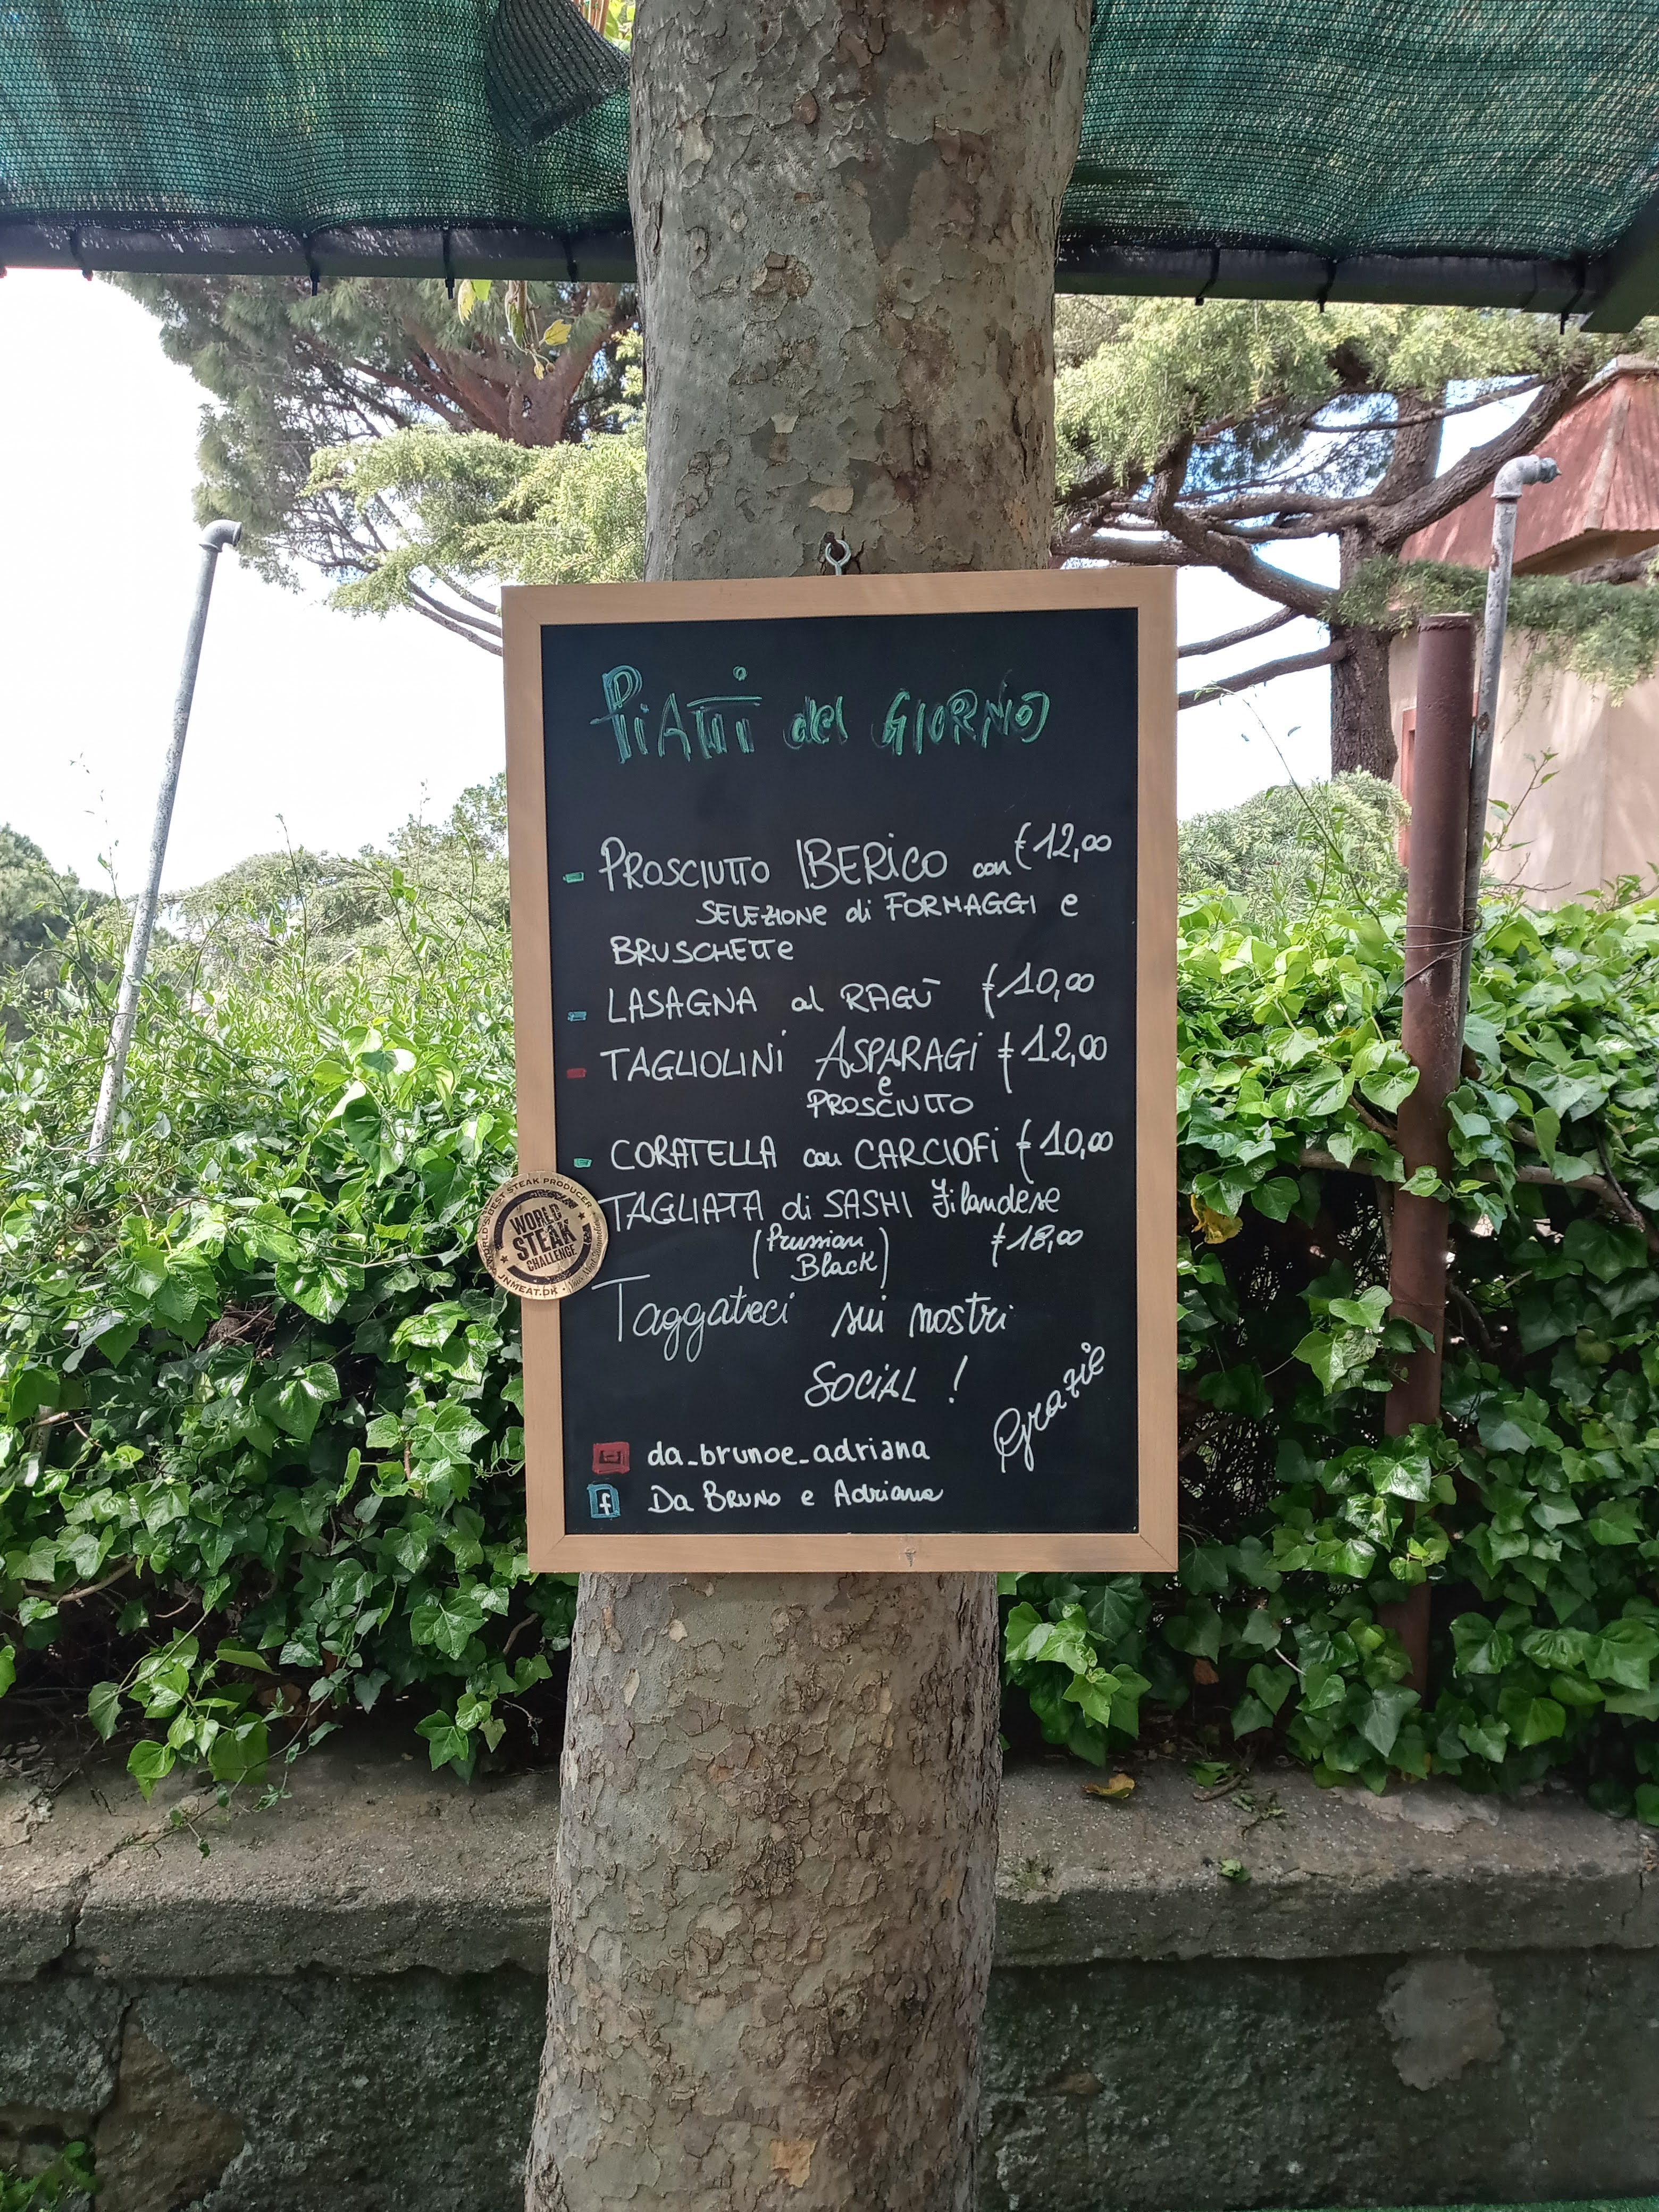 PiATTi del GIORNO
- PROSCIUTTO IBERICO con € 12,00
SELEZIONE di FORMAGGI e
BRUSCHETTE
- LASAGNA al RAGÙ € 10,00
- TAGLIOLINI ASPARAGI € 12,00
e
PROSCIUTTO
- CORATELLA con CARCIOFI € 10,00
TAGLIATA di SASHI Filandese
(Prussian € 18,00
Black)
Taggateci sui nostri
SOCIAL !
Grazie
da_brunoe_adriana
f Da Bruno e Adriana
WORLD'S BEST STEAK PRODUCER
WORLD
STEAK
CHALLENGE
JNMEAT.DK